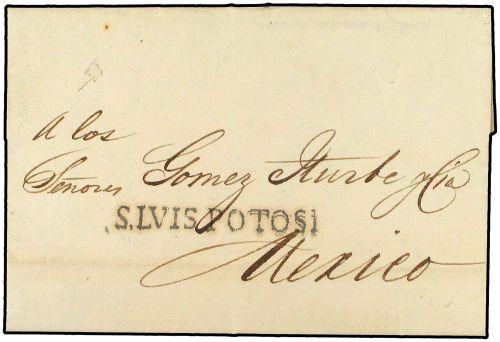 A los
Señores Gomez Iturbe y Cia
S.LVIS POTOSI
Mexico